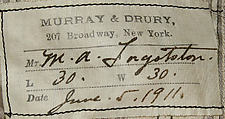 MURRAY & DRURY,
207 Broadway, New York.
Mr. M. A. Ingstston.
L 30. W 30.
Date June. 5. 1911.